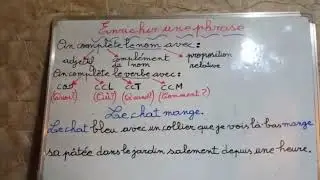 Enrichir une phrase
On complète le nom avec:
adjectif complément du nom proposition relative
On complète le verbe avec:
COD CCL CCT CCM
(Quoi?) (Où?) (Quand?) (Comment?)
Le chat mange.
Le chat bleu avec un collier que je vois là-bas mange
sa pâtée dans le jardin salement depuis une heure.